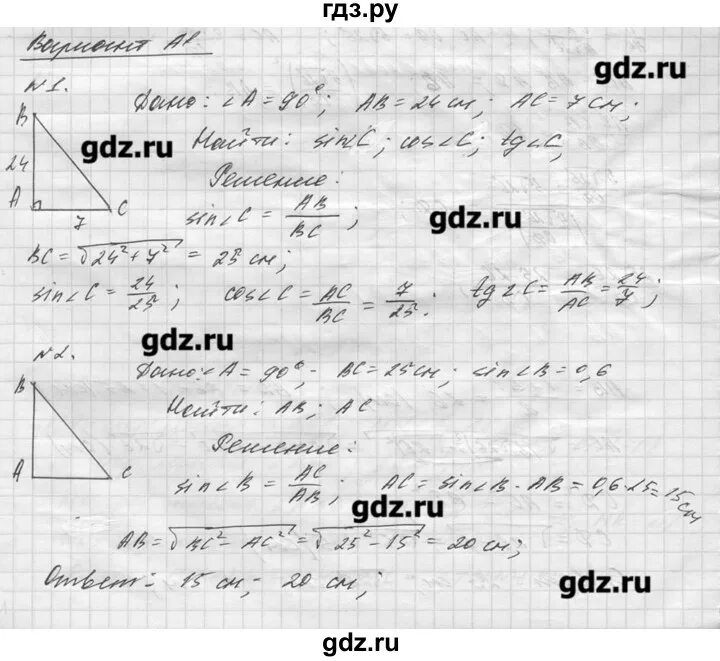 гдз.ру
Вариант А1
gdz.ru
№1.
Дано: ∠A = 90°; AB = 24 см; AC = 7 см;
B
gdz.ru
Найти: sin∠C; cos∠C; tg∠C;
24
Решение:
A
7
C
sin∠C = AB/BC;
gdz.ru
BC = √(24² + 7²) = 25 см;
sin∠C = 24/25; cos∠C = AC/BC = 7/25; tg∠C = AB/AC = 24/7;
gdz.ru
№2.
Дано: ∠A = 90°; BC = 25 см; sin∠B = 0,6
B
Найти: AB; AC
Решение:
A
C
sin∠B = AC/AB; AC = sin∠B · AB = 0,6·25 = 15 см
gdz.ru
AB = √(BC² − AC²) = √(25² − 15²) = 20 см;
Ответ: 15 см; 20 см;
gdz.ru
gdz.ru